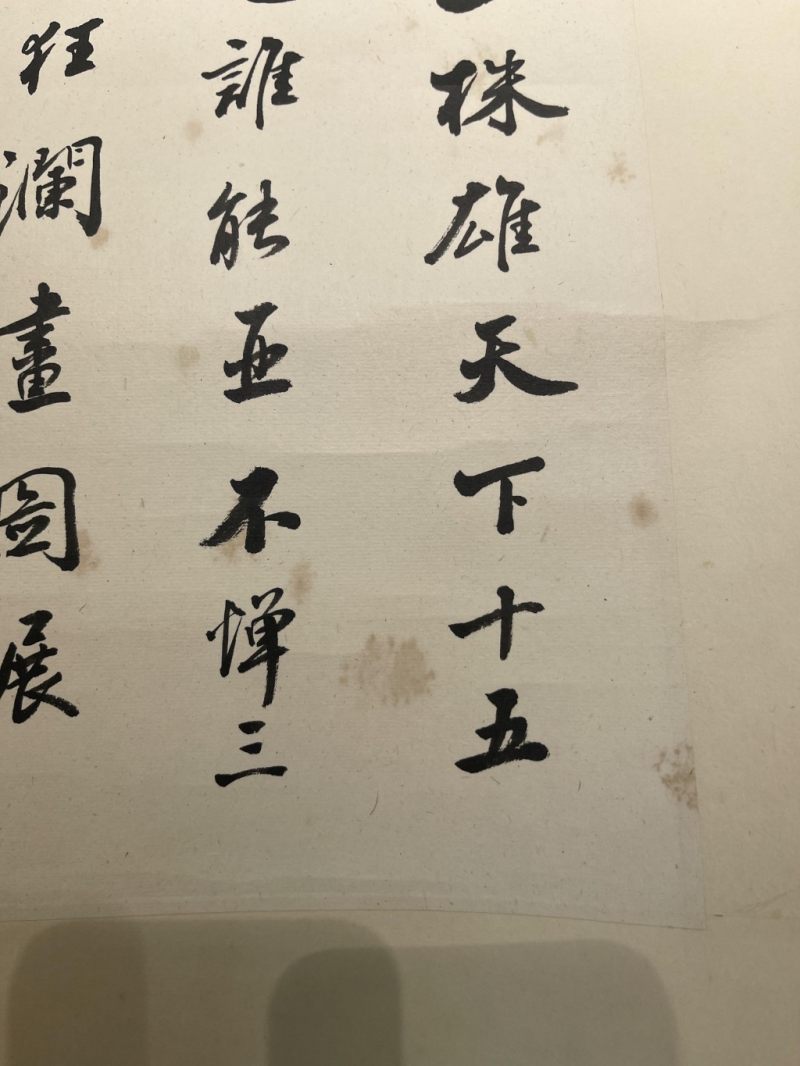 株雄天下十五
誰能亞不憚三
狂瀾畫圖展